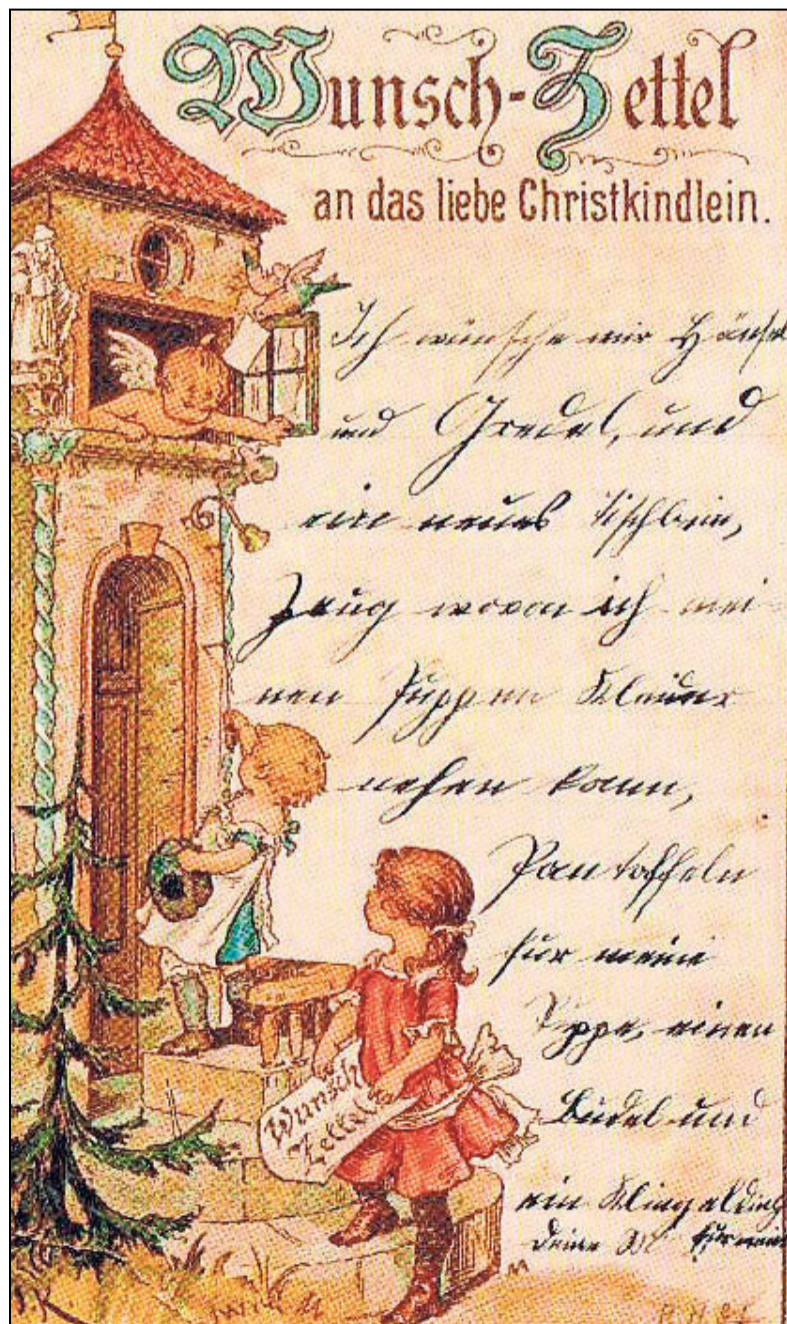 Wunsch-Zettel
an das liebe Christkindlein.
Ich wünsche mir Hänsel
und Gredel, und
ein neues Tischbein,
Zeug wovon ich mei
nen Puppen Kleider
nehen kann,
Pantoffeln
für meine
Puppe, einen
Büdel und
ein Klingelding
Deine für mein
Wunsch
Zettel